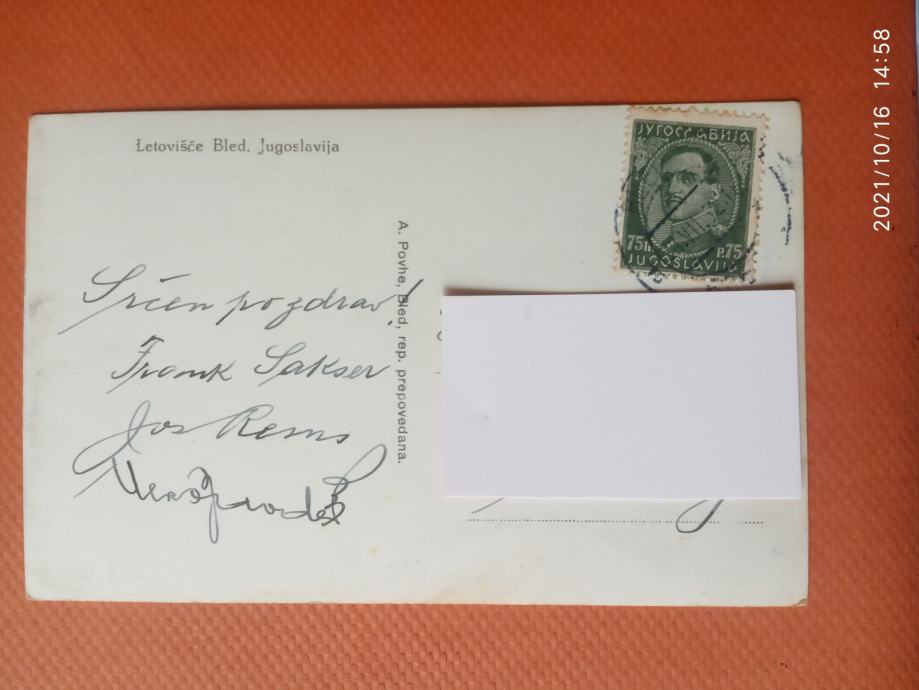 2021/10/16 14:58
Letovišče Bled, Jugoslavija
ЈУГОСЛАВИЈА
75П P.75
JUGOSLAVIJA
A. Povhe, Bled, rep. prepovedana.
Srčen pozdrav!
Frank Sakser
Jos Rems